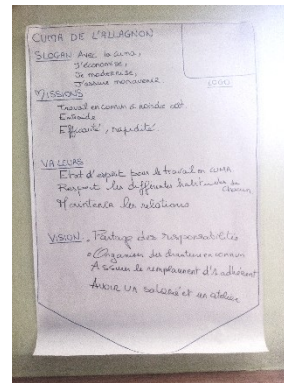 CUMA DE L'ALLAGNON
SLOGAN Avec la cuma,
J'économise,
Je modernise,
J'assure mon avenir
LOGO
MISSIONS
Travail en commun à moindre coût
Entraide
Efficacité, rapidité.
VALEURS
Etat d'esprit pour le travail en cuma
Respect les différentes habitudes de chacun
Maintenir les relations
VISION . Partage des responsabilités
. Organiser des chantiers en commun
Assurer le remplacement d'1 adhérent
AVOIR UN salarié et un atelier